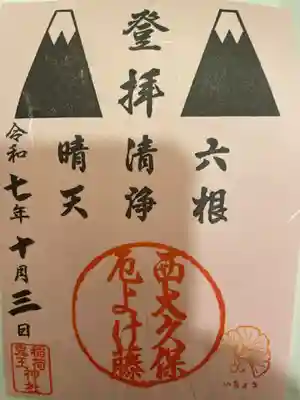 登拝
六根
清浄
晴天
令和七年十月三日
西大久保
厄よけ藤
稲荷神社
鬼王